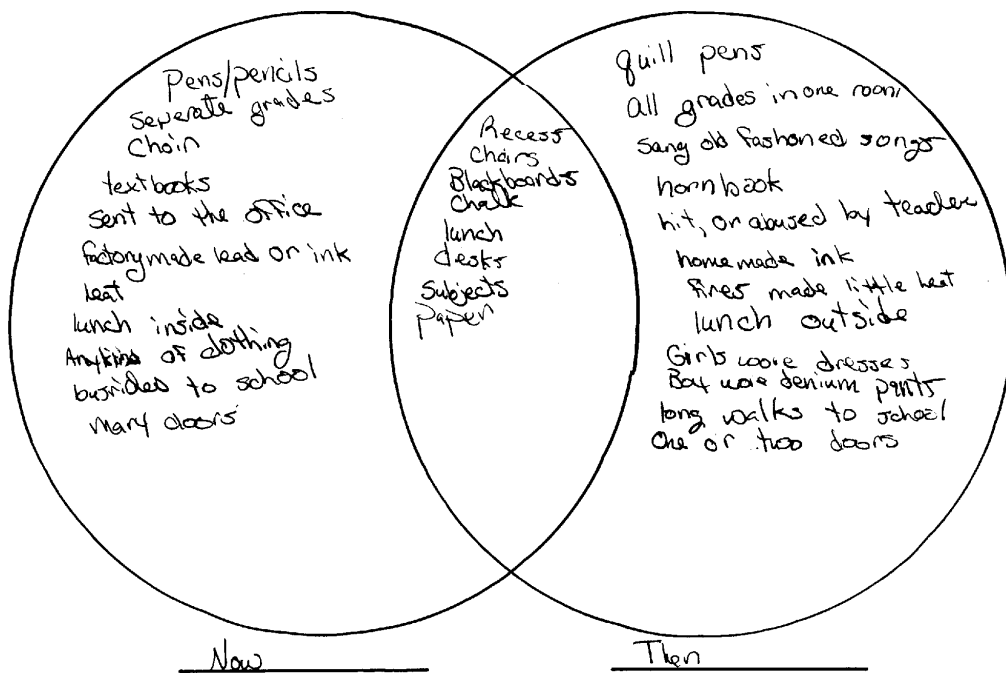 Pens/pencils
Seperate grades
Choir
textbooks
Sent to the office
factorymade lead or ink
heat
lunch inside
Anykind of clothing
busrides to school
many doors
Recess
Chairs
Blackboards
Chalk
lunch
desks
Subjects
paper
quill pens
all grades in one room
Sang old fashoned songs
hornbook
hit, or abused by teacher
homemade ink
fires made little heat
lunch outside
Girls wore dresses
Boy wore denium pants
long walks to school
One or two doors
Now
Then